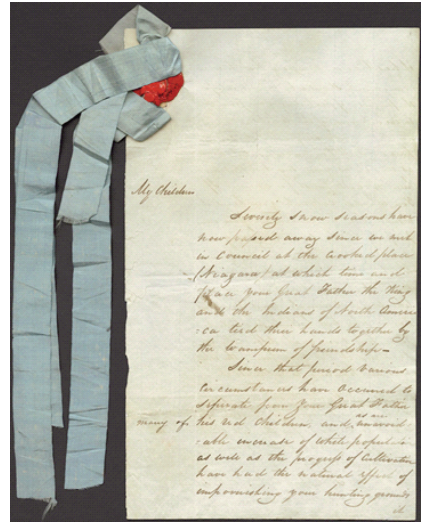 My Children
Seventy snow seasons have
now passed away since we met
in Council at the crooked place
(Niagara) at which time and
place your Great Father the King
and the Indians of North Ameri-
-ca tied their hands together by
the wampum of friendship—
Since that period various
circumstances have occurred to
separate from your Great Father
many of his red children, and as an unavoid
-able increase of white population
as well as the progress of cultivation
have had the natural effect of
impoverishing your hunting grounds
it